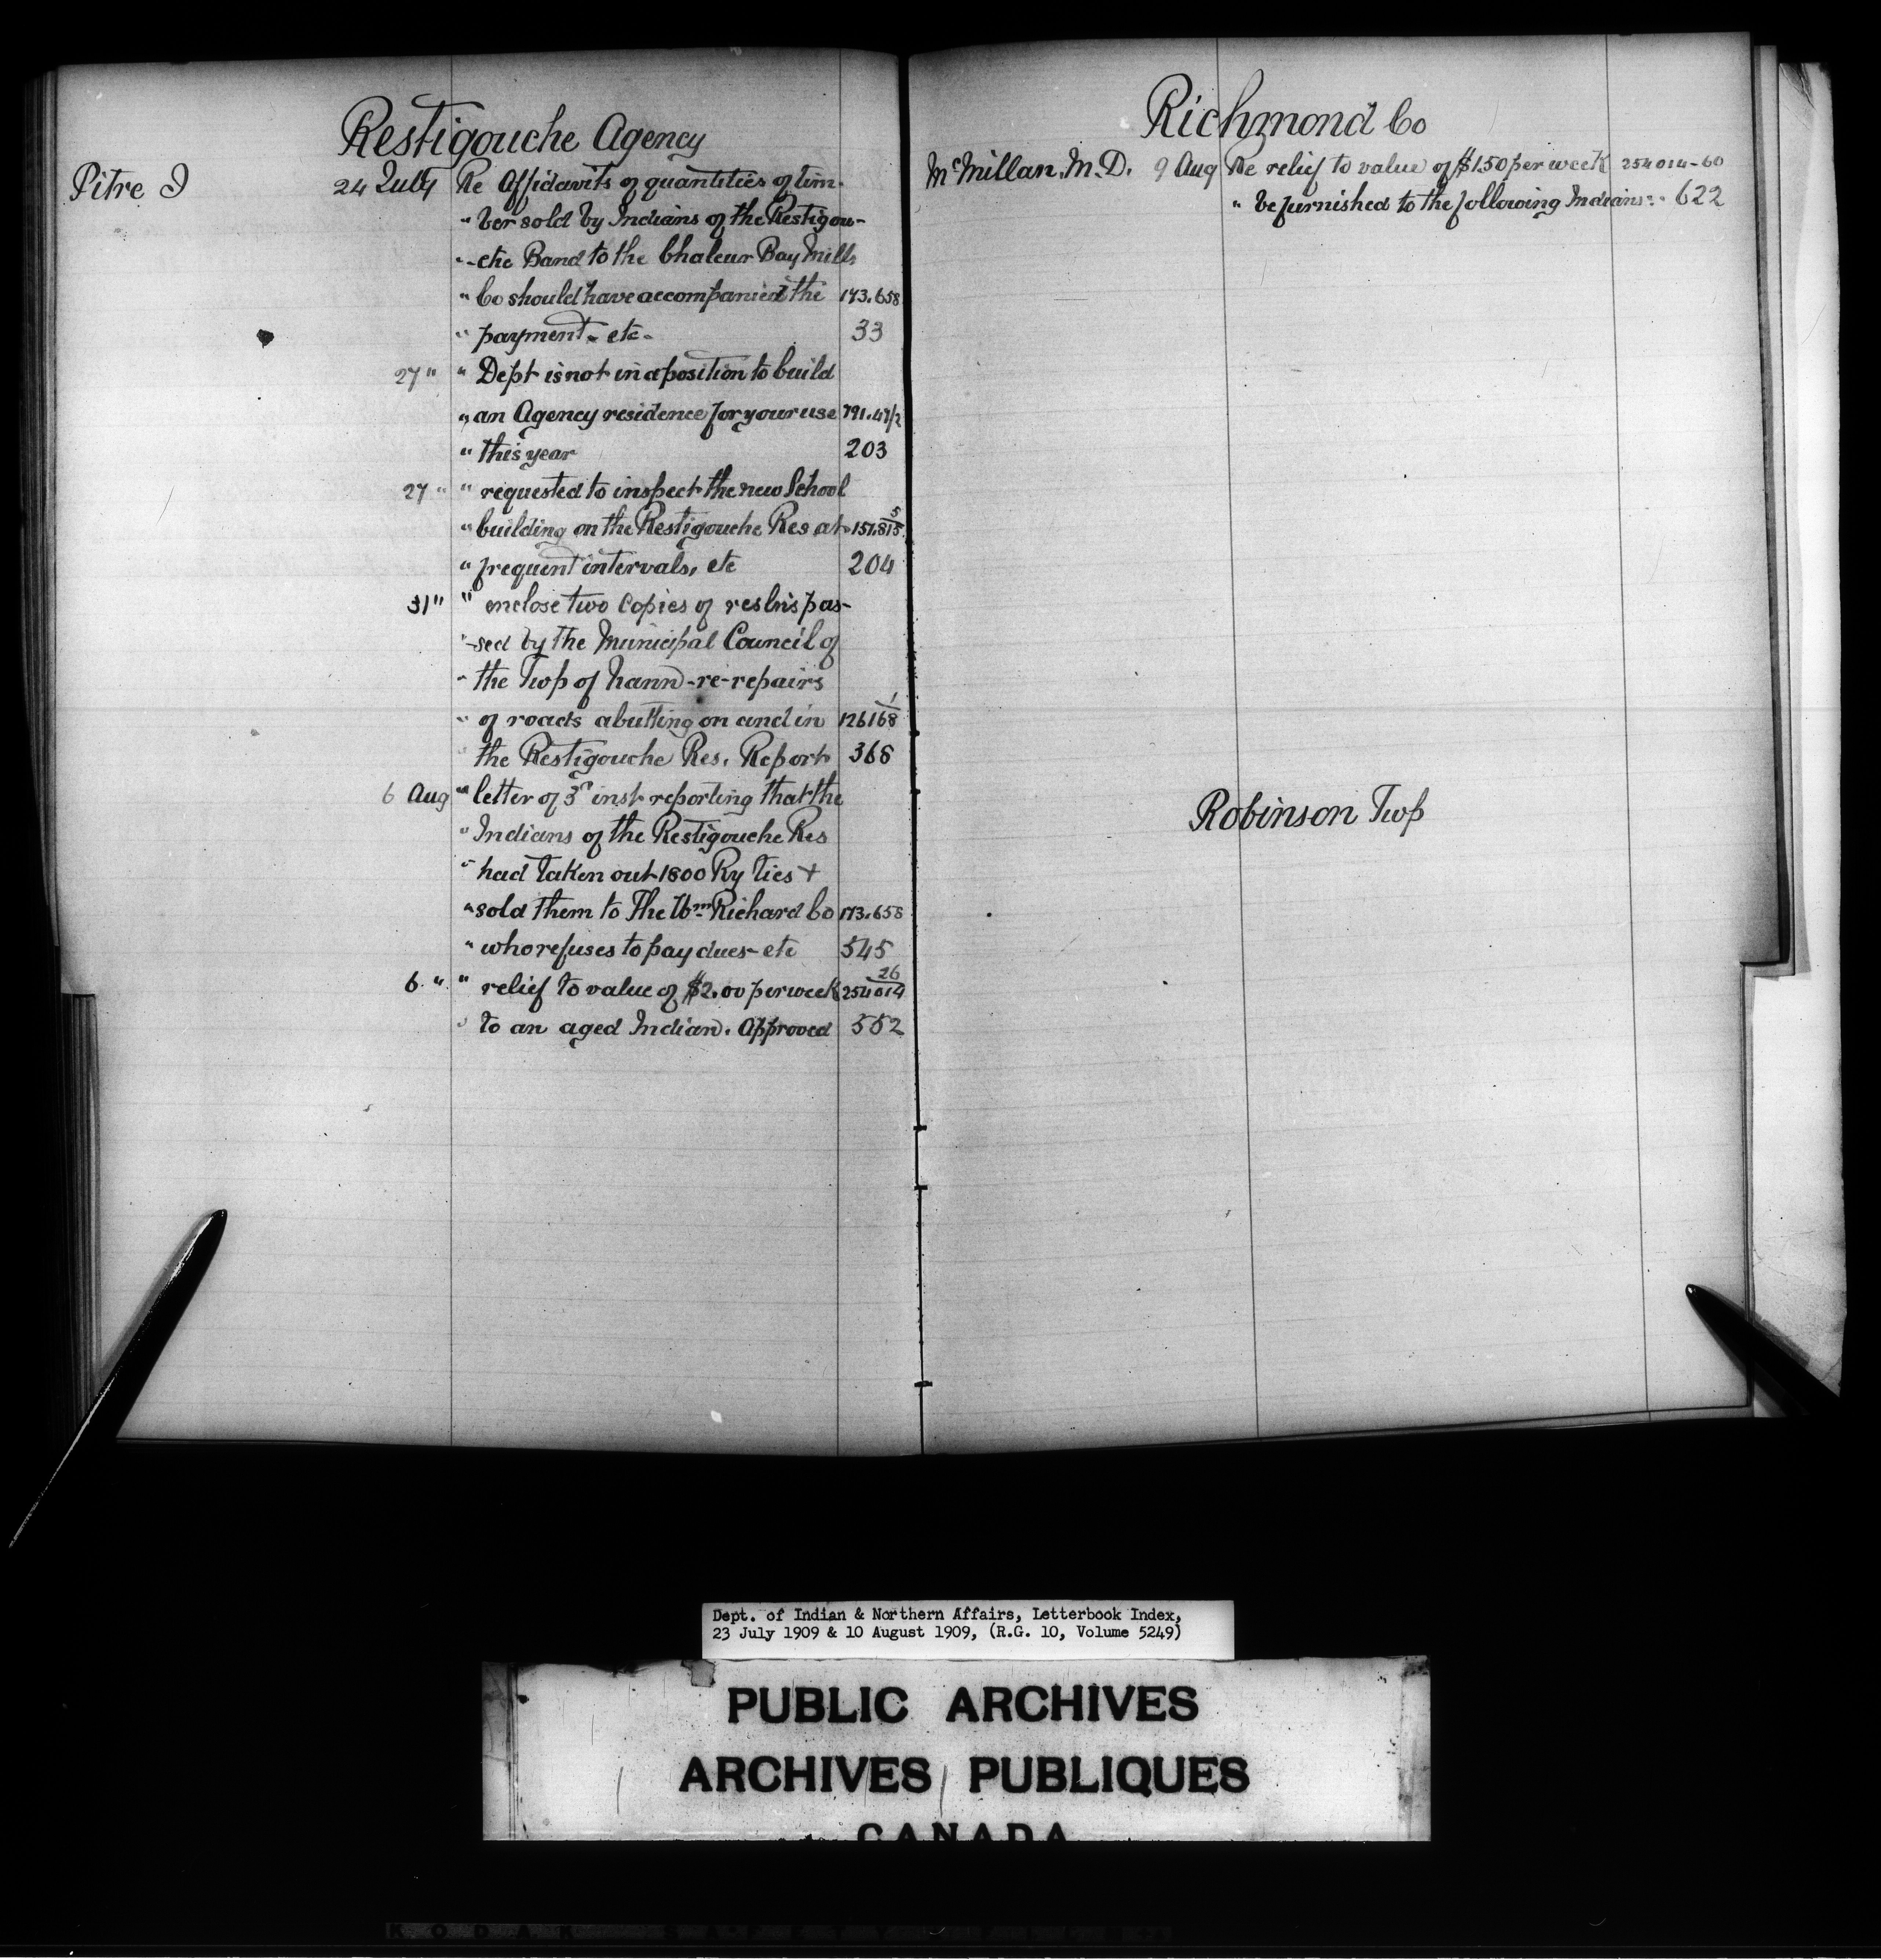 Restigouche Agency
Pitre I 24 July Re Affidavits of quantities of tim-
" ber sold by Indians of the Restigou-
" -che Band to the Chaleur Bay Mills
" Co should have accompanied the 173.658
" payment - etc - 33
27 " " Dept is not in a position to build
" an Agency residence for your use 191.47/2
" this year 203
27 " " requested to inspect the new School
" building on the Restigouche Res at 151.815/5
" frequent intervals, etc 204
31 " " enclose two copies of resln's pas-
" -sed by the Municipal Council of
" the Twp of Mann - re - repairs
" of roads abutting on and in 126168/1
" the Restigouche Res. Report 368
6 Aug " letter of 3rd inst reporting that the
" Indians of the Restigouche Res
" had taken out 1800 Ry ties +
" sold them to The Wm Richard Co 173.658
" who refuses to pay dues - etc 545
6 " " relief to value of $2.00 per week 254014/26
" to an aged Indian. Approved 552
Richmond Co
McMillan, M.D. 9 Aug Re relief to value of $1.50 per week 254014-60
" be furnished to the following Indians: - 622
Robinson Twp
Dept. of Indian & Northern Affairs, Letterbook Index,
23 July 1909 & 10 August 1909, (R.G. 10, Volume 5249)
PUBLIC ARCHIVES
ARCHIVES PUBLIQUES
CANADA
KODAK SAFETY